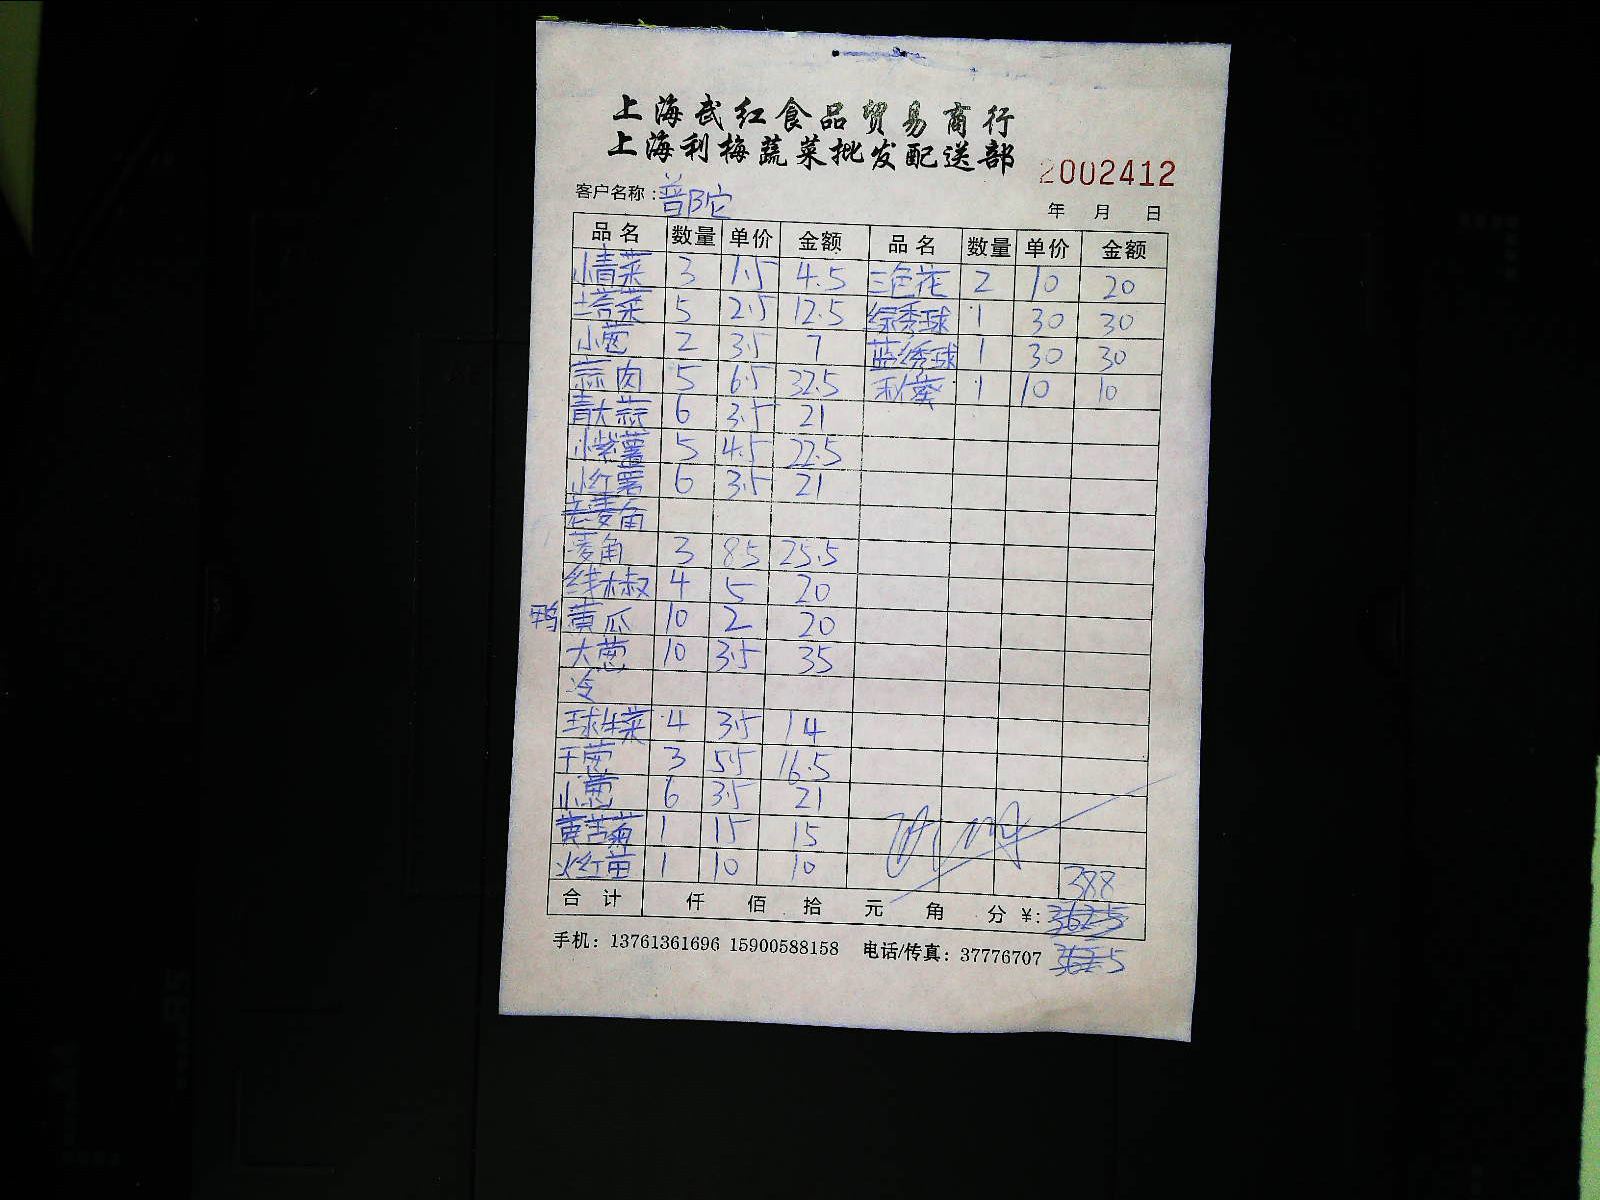 上海武红食品贸易商行
上海利梅蔬菜批发配送部
2002412
客户名称：普陀
年 月 日
品名 数量 单价 金额 品名 数量 单价 金额
小青菜 3 1.5 4.5 三色花 2 10 20
塔菜 5 2.5 12.5 综秀球 1 30 30
小葱 2 3.5 7 蓝绣球 1 30 30
蒜肉 5 6.5 32.5 秋葵 1 10 10
青大蒜 6 3.5 21
小紫薯 5 4.5 22.5
小红薯 6 3.5 21
老菱角
菱角 3 8.5 25.5
线椒 4 5 20
鸭 黄瓜 10 2 20
大葱 10 3.5 35
冷
球生菜 4 3.5 14
干葱 3 5.5 16.5
小葱 6 3.5 21
黄苦菊 1 15 15
火红苗 1 10 10
388
合计 仟 佰 拾 元 角 分 ¥: 362.5
手机：13761361696 15900588158 电话/传真：37776707 362.5